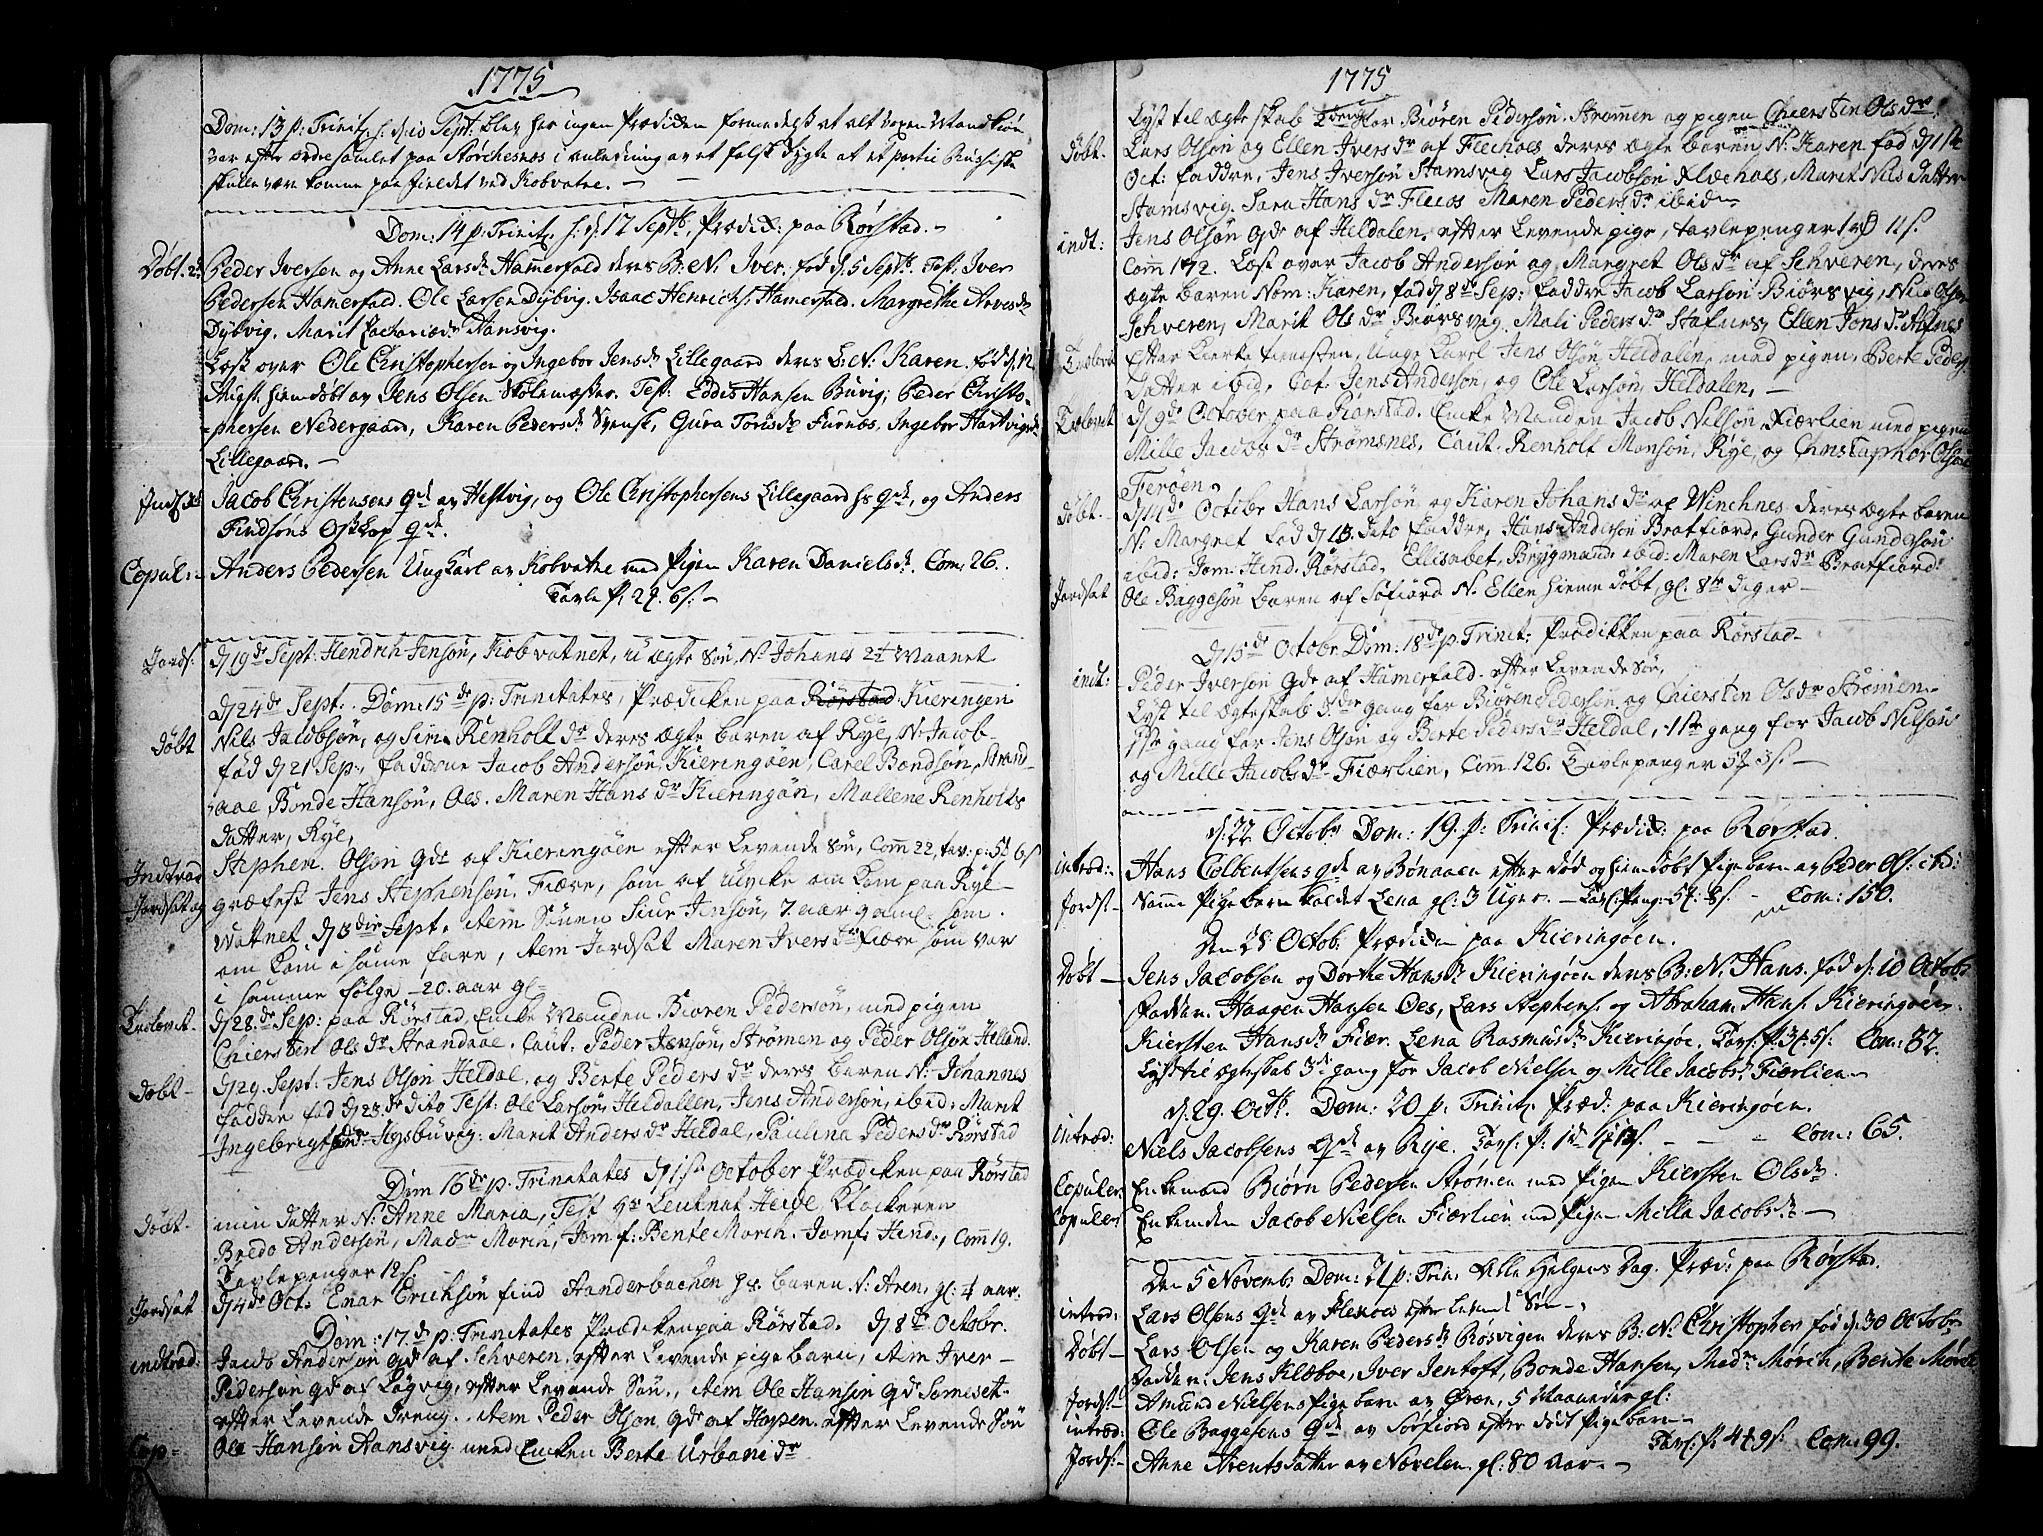 1775
Dom: 13 p: Trinit: s: d: 10 Sept: blev her ingen Prædiken formedelst at alt voxen Mandkiøn
var efter ordre samlet paa Størchesnes i anledning av et falsk Rygte at et partie Russiske
skulle vær komne paa fieldet ved Kobvatne. —
Dom: 14 p: Trinit: s: d: 17 Septb. Prædik: paa Rørstad. —
Døbt. 2de Peder Iversen og Anne Larsdr Hamerfald deres B: N: Iver. fød d. 5 Septb. Test. Iver
Pedersen Hamerfald. Ole Larsen Dybvig. Isaac Henrichs. Hamerfald. Margrethe Arvesdr
Dybvig. Marit Zachariædr Aansvig.
Læst over Ole Christophersen og Ingebor Jensdr Lillegaard deres B: N: Karen. fød d. 12
Augst. hiemdøbt av Jens Olsen Skolemester. Test: Eddis Hansen Buvig; Peder Christo-
phersen Nedergaard, Karen Pedersdr Svensk, Gura Torisdr Furnes. Ingebor Hartvigsdr
Lillegaard. —
Jacob Christensens qdt av Hestvig, og Ole Christophersens Lillegaard hs qdt, og Anders
Findsøns qdt.
Copul: — Anders Pedersen Ungkarl av Kobvatne med Pigen Karen Danielsdr. Com: 26.
Tavle P: 2 6 s: —
Jords: d 19de Sept: Hendrich Jensøn, Kobvatnet, u ægte Søn, N: Johanes 2 Maanet
d 24de Sept: Dom: 15de p: Trinitates, Prædicken paa Rørstad Kieringøen
Døbt Nils Jacobsøn, og Siri Renholt dr deres ægte baren af Rye, N: Jacob-
fød d 21 Sep:, faddrue Jacob Andersøn, Kieringøen, Carel Bondsøn, Strand-
aae Bonde Hansøn, Oes. Maren Hans dr Kieringøn, Mallene Renholts
datter, Rye,
Indtrod Stephen Olsøn qdt af Kieringøen efter Levende Søn, Comm 22, tav: p: 6 s
Jordsat og græfest Jens Stephensøn, Fiære, som af Ulycke om Kom paa Rye-
Vattnet, d 3die Sept. item Sønen Siur Jensøn, 7. aar gaml- som.
om Kom i samme fare, item Jordsat Maren Ivers dr Fiære som var
i samme følge - 20. aar gl-
Trolovet. d 28de Sep: paa Rørstad Encke Manden Biøren Pedersøn, med pigen
Chiersten Ols dr Strandaae. Caut: Peder Jensøn, Strømen og Peder Olsøn Helland.
Døbt — d 29. Sept: Jens Olsøn Heldal. og Berte Peders dr deres baren N: Johannes
faddre fød d 25de dito Test: Ole Larsøn, Heldallen, Jens Andersøn, ibid: Marit
Ingebrigts dr Hysbuvig: Marit Anders dr Heldal, Paulina Peders dr Rørstad
Dom 16de p: Trinitates d 1ste October Prædicken paa Rørstad
Døbt. min datter N: Anne Maria, Test Hr Leutnat Heide, Klockeren
Bredo Andersøn, Madm Morch, Jomf: Bente Morch. Jomf: Hind., Comm 19.
Tavlepenger 12 s.
Jordsat d 4de Oct. Enar Ericksøn find Aanderbachen hs. baren N: Aren, gl: 4 aar.
Dom: 17de p: Trinitates Prædicken paa Rørstad. d 8de Octobr.
indtrod: Jacob Andersøn qdt af Sehveren. efter Levende pigebarn, item Iver —
Pedersøn qdt af Lagvig, efter Levende Søn., item Ole Hansøn qdt Someset-
efter Levende Dreng. item Peder Olsøn qdt af Hopen. efter Levende Søn
Cop= Ole Hansøn Aansvig med Encken Berte Urbani dr
1775
Lyst til ægteskab 2den gang for Biøren Pedersøn. Strømen og pigen Chiersten Ols dr.
Døbt. Lars Olsøn og Ellen Ivers dr af Flechoes deres ægte baren N: Karen fød d 1ste
Oct: faddre, Jens Iversøn Stamsvig Lars Jacobsøn Marit Nils datter
Stamsvig. Sara Hans dr Flecos Maren Peders dr ibid
indt: Jens Olsøn qdt af Heldalen. efter Levende pige, tavlepenger 1 11 s.
Comm 172. Læst over Jacob Andersøn og Margret Ols dr af Sehveren, deres
ægte baren Nom: Karen, fød d 8de Sep: faddre Jacob Larsøn Biørsvig, Nils Olsøn
Sehveren, Marit Ols dr Biørsvig, Mali Peders dr Stafnes, Ellen Jons dr
Trolovet Efter Kierke tienesten, Unge Karl Jens Olsøn, Heldalen, med pigen, Berte Peders
datter ibid, Cat. Jens Andersøn, og Ole Larsøn, Heldalen, —
Trolovet d 9de October paa Rørstad. Encke Manden Jacob Nilsøn, Fiærlien med pigen
Mille Jacobs dr Strømsnes. Caut. Renholt Monsøn, Rye, og Christopher Olsøn
Ferøen.
Døbt. — d 14de October Hans Larsøn og Karen Johans dr af Winchnes deres ægte baren
N: Margret fød d 13. dito faddre, Hans Andersøn Bratfiord, Gunder Gundersøn
ibid: Jom: Hind. Rørstad. Ellisabet, Bryggmand, ibid: Maren Lars dr Bratfiord:
Jordsat Ole Baggesøn baren af Søfiord N: Ellen hieme døbt, gl. 8te dager —
d 15de Octobr Dom: 18de p: Trinit: Prædikken paa Rørstad-
indt: Peder Iversøn qdt af Hamerfald. efter Levende Søn,
Lyst til Ægteskab 3die gang for Biøren Pedersøn. og Chiersten Ols dr Strømen.
1ste gang for Jens Olsøn og Berte Peders dr Heldal, 1ste gang for Jacob Nilsøn
og Mille Jacobs dr Fiærlien, Com 126. Tavlepenger 3 s: —
d: 22 Octobr Dom: 19. p: Trinit: Prædik: paa Rørstad.
introd: Hans Colbentsens qdt av Bønaaen efter død og hiemdøbt Pigebarn av Peder Ols: ibid:
Jords: — Samme Pigebarn kaldet Lena gl: 3 Uger. — Tavl: Peng: 8 s: — Com: 150.
Den 28 Octob. Prædiken paa Kieringøen.
Døbt — Jens Jacobsen og Dorthe Hansdr Kieringøen deres B: N. Hans. fød d: 10 Octobr
Faddr: Haagen Hansen Oes, Lars Stephens. og Abraham Hans. Kieringøen.
Kiersten Hansdr Fiær. Lena Rasmusdr Kieringøe. Tavl: P: 3 5 s: Com: 32.
Lyst til Ægteskab 3de gang for Jacob Nielsen og Mille Jacobsdr Fiærlien
d: 29. Octb. Dom: 20 p. Trinit. Præd: paa Kieringøen.
introd: Niels Jacobsens qdt av Rye. Tavl: P: 1 — — — Com: 65.
Copuler: Enkemand Biørn Pedersen Strømen med Pigen Kiersten Olsdr.
Copuler: Enkemden Jacob Nielsen Fiærlien med Pigen Milla Jacobsdr —
Den 5 Novemb: Dom: 21 p: Trin. Alle Helgens Dag. Præd: paa Rørstad.
introd: Lars Olsens qdt av Flexoes efter levend Søn —
Døbt — Lars Olsen og Karen Pedersdr Røsvigen deres B: N: Christopher fød d: 30 Octobr
Fadder: Jens Klæboe, Iver Jentoft, Bonde Hansen, Madm Mørch, Bente Mørch
Jords: — Amund Nielsens Pigebarn av Øren, 5 Maaneder gl:
introd: Ole Baggesens qdt av Sørfiord efter død Pigebarn —
Tavl: P: 4 9 s: Com: 99.
Jords: — Anne Arentsdatter av Nevelen. gl: 80 Aar. —